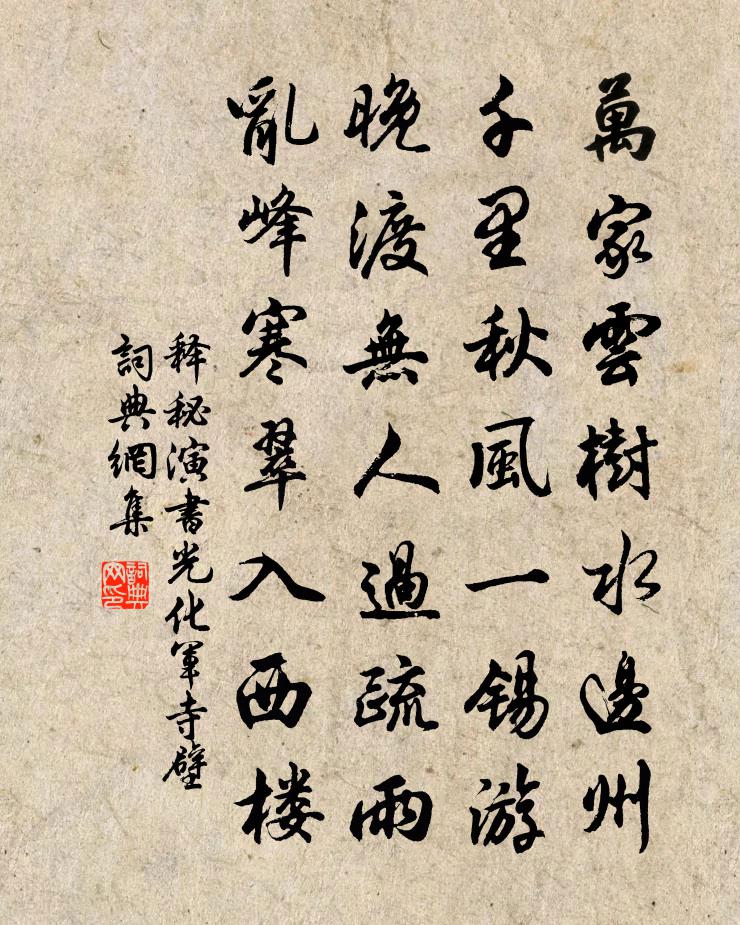 萬家雲樹水邊州
千里秋風一錫游
晚渡無人過疏雨
亂峰寒翠入西楼
释秘演書光化軍寺壁
詞典網集
詞典网印